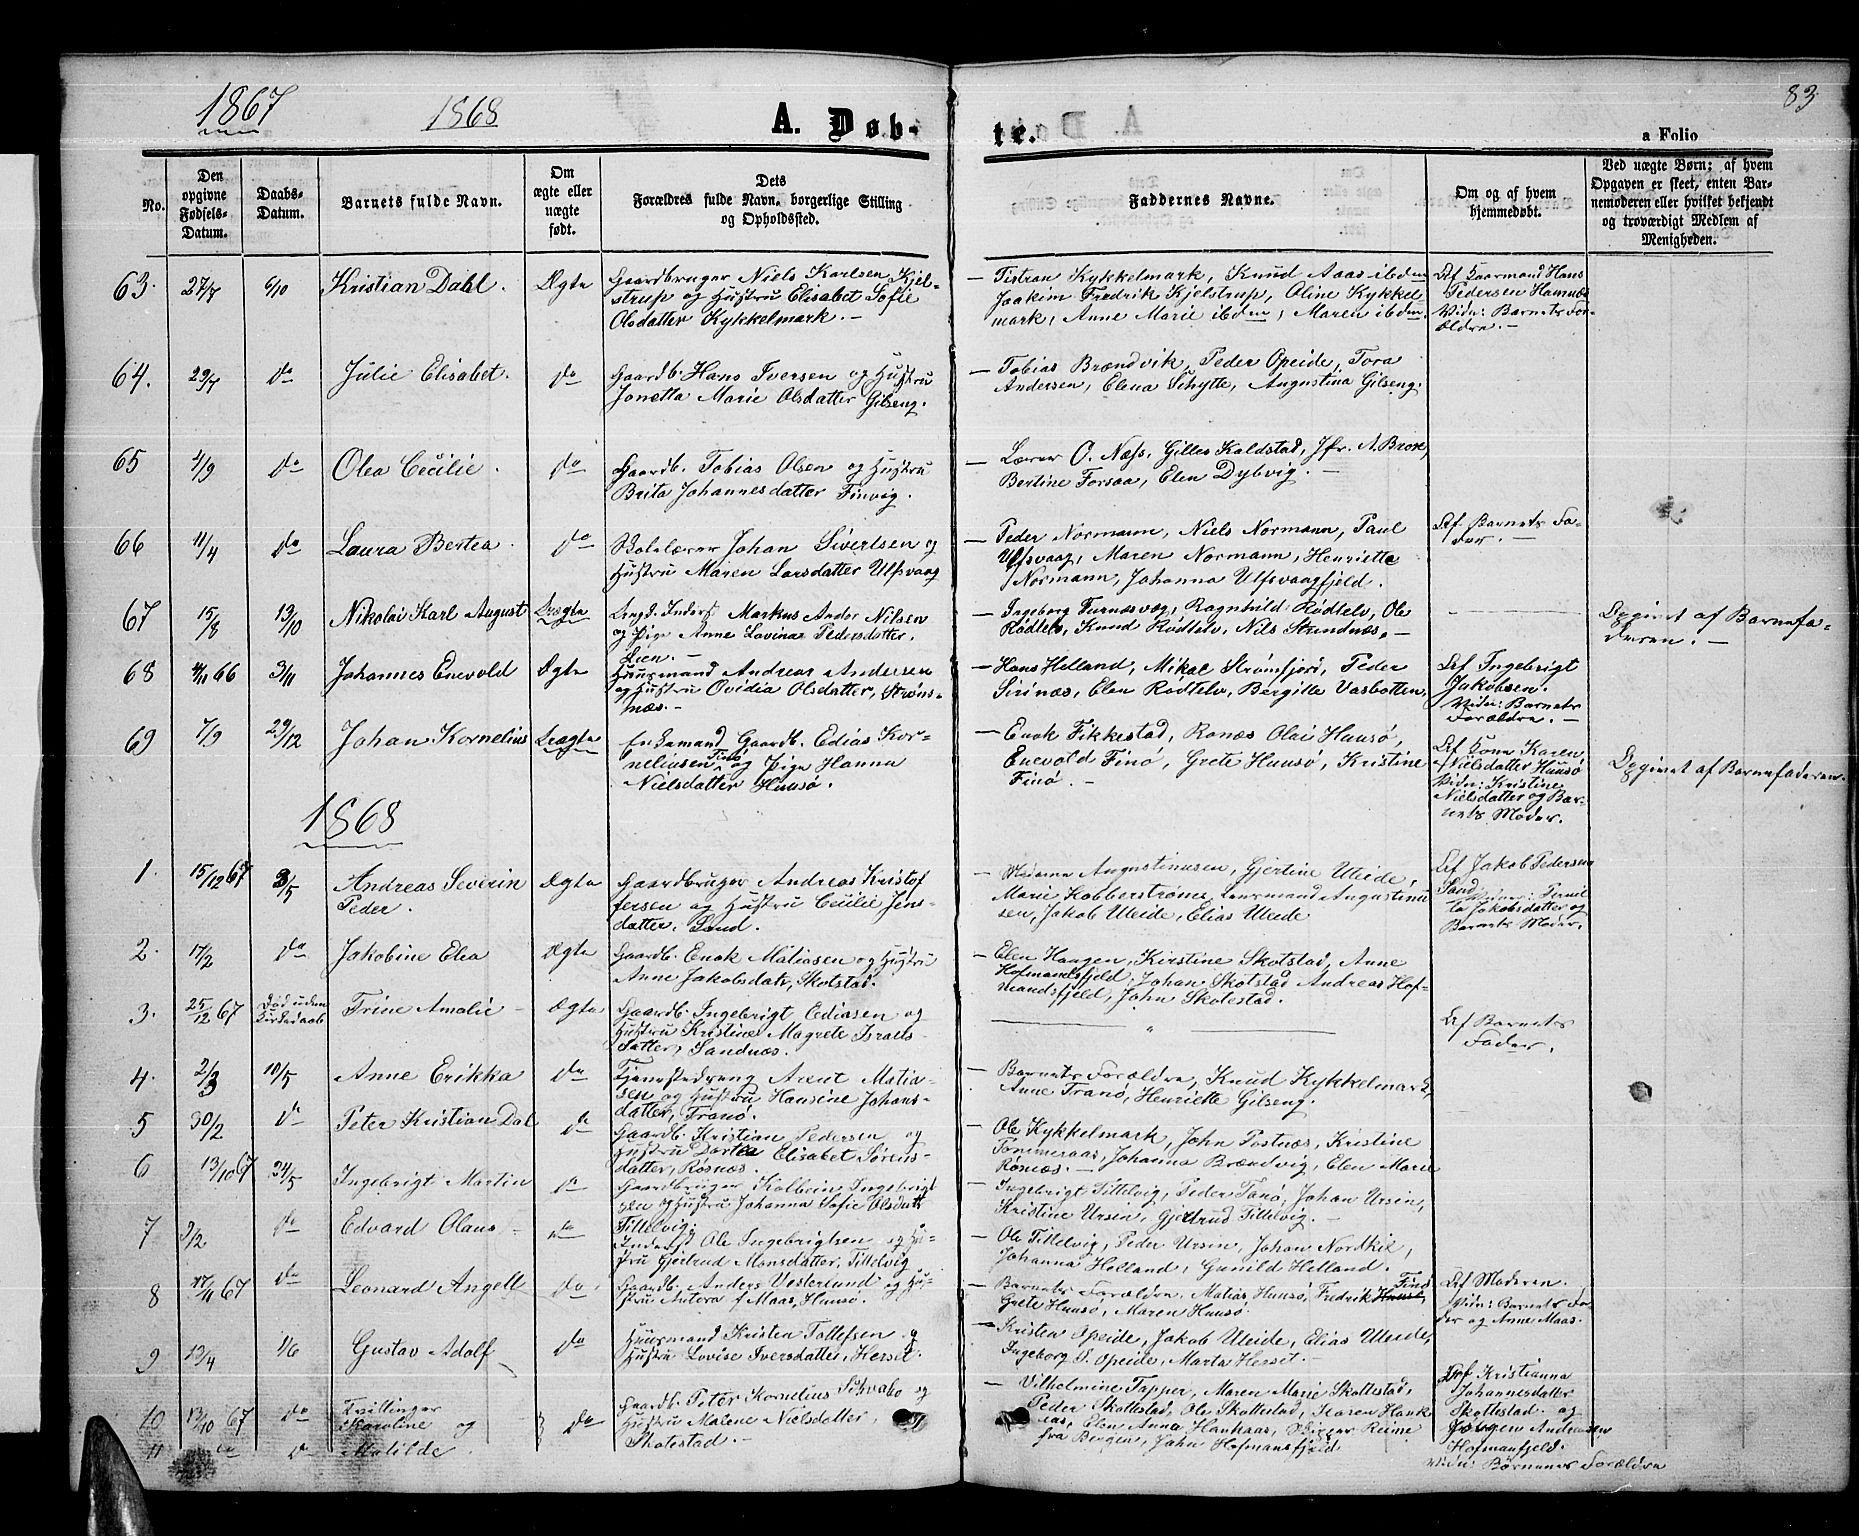 1867
1868
A. Døb-
te.
83
a Folio
No.
Den opgivne Fødsels-Datum.
Daabs-Datum.
Barnets fulde Navn.
Om ægte eller uægte født.
Dets Forældres fulde Navn, borgerlige Stilling og Opholdssted.
Faddernes Navne.
Om og af hvem hjemmedøbt.
Ved uægte Børn; af hvem Opgaven er skeet, enten Barnemoderen eller hvilket bekjendt og troværdigt Medlem af Menigheden.
63. 27/7 6/10 Kristian Dahl. Ægte
Gaardbruger Niels Karlsen Kjel-
strup og Hustru Elisabet Sofie
Olsdatter Kykkelmark. —
— Tistran Kykkelmark, Knud Aaas ibdm
Joakim Fredrik Kjelstrup, Oline Kykkel
mark, Anne Marie ibdm, Maren ibdm.
Af Gaarmand Hans
Pedersen Hamnæs
Vidn: Barnets For-
ældre. —
64. 29/7 do Julie Elisabet. do
Gaardb. Hans Iversen og Hustru
Jonetta Marie Olsdatter Gilseng.
— Tobias Brændvik, Peder Opeide, Tora
Andersen, Elena Schytte, Augustina Gilseng.
65 4/9 do Olea Cecilie. do
Gaardb. Tobias Olsen og Hustru
Brita Johannesdatter Finvig.
— Lærer O. Næss, Gilles Kaldstad, Jfr. A. Brox,
Bertine Forsaa, Elen Dybvig. —
66 11/4 do Laura Bertea. do
Skolelærer Johan Sivertsen og
Hustru Maren Larsdatter Ulfsvaag
— Peder Normann, Niels Normann, Paul
Ulfsvaag, Maren Normann, Henriette
Normann, Johanna Ulfsvaagfjeld.
Af Barnets Fa-
der. —
67 15/8 13/10 Nikolai Karl August Uægte
Ungd. Inderst Markus Andor Nilsen
og Pige Anne Lovina Pedersdatter.
Lien. —
— Ingeborg Furnæsvæg, Ragnhild Rødtelv, Ole
Rødtelv, Knud Rødtelv, Nils Strindnæs. —
Opgivet af Barnefa-
deren. —
68 4/11 66 3/11 Johannes Enevold Ægte
Huusmand Andreas Andersen
og Hustru Ovidia Olsdatter, Strøms-
næs. —
— Hans Helland, Mikal Strømfjord, Peder
Sirinæs, Elen Rødtelv, Bergitte Vasbotten.
Af Ingebrigt
Jakobsen.
Vidn: Barnets
Forældre. —
69 7/9 29/12 Johan Kornelius Uægte
Enkemand Gaardb. Edias Kor-
neliusen Finø og Pige Hanna
Nielsdatter Huusø.
— Enok Fikkestad, Ronæs Olai Huusø,
Enevold Finø, Grete Huusø, Kristine
Finø. —
Af Kone Karen
Nielsdatter Huusø
Vidn: Kristine
Nielsdatter og Bar-
nets Moder.
Opgivet af Barnefaderen.
1868
1. 15/12 67 3/5 Andreas Severin
Peder.
Ægte
Gaardbruger Andreas Kristof
fersen og Hustru Cecilie Jens-
datter, Sand.
— Madama Augustinusen, Gjertine Uleide,
Marie Kobberstrøm, Lensmand Augustinu
sen, Jakob Uleide, Elias Uleide
Af Jakob Pedersen
Sand
Vidner: Pernil
la Jakobsdatter og
Barnets Moder.
2. 17/2 do Jakobine Elea Ægte
Gaardb. Enok Matiasen og Hustru
Anne Jakobsdatr, Skotstad.
— Elen Haugen, Kirstine Skotstad, Anne
Hofmandsfjeld, Johan Skotstad Andreas Hof-
mandsfjeld, John Skotestad.
3. 25/12 67 Død uden Kirkedaab Trine Amalie — Ægte
Gaardb. Ingebrigt Ediasen og
Hustru Kristine Magrete Israels-
datter, Sandnæs.
— "
Af Barnets
Fader.
4. 2/3 10/5 Anne Erikka do
Tjenestedreng Arent Matia-
sen og Hustru Hansine Johans-
datter, Tranø.
— Barnets Forældre, Knud Kykkelmark,
Anne Tranø, Henriette Gilseng.
5 30/2 do Peter Kristian Dal do
Gaardb. Kristian Pedersen og
Hustru Dortea Elisabet Sørens-
datter, Røsnæs.
— Ole Kykkelmark, John Postnæs, Kristine
Tømmeraas, Johanna Brændvig, Elen Marie
Rønæs. —
6 13/10 67 24/5 Ingebrigt Martin do
Gaardbruger Kolbein Ingebrigt
sen og Hustru Johanna Sofie Olsdatr
Tittelvig.
— Ingebrigt Tittelvig, Peder Tanø, Johan Ursin,
Kristine Ursin, Gjertrud Tittelvig. —
7 3/2 do Edvard Olaus do
Inderst Ole Ingebrigtsen og Hu-
stru Gjertrud Monsdatter, Tittelvig
— Ole Tittelvig, Peder Ursin, Johan Nordkil,
Johanna Helland, Gunild Helland.
8 17/11 67 do Leonard Angell do
Gaardb. Anders Vesterlund og Hu-
stru Antora f. Maas, Huusø.
— Barnets Forældre, Matias Huusø, Fredrik Huusø, Finø
Grete Huusø, Maren Huusø.
Af Moderen.
Vidn: Barnets Fa-
der og Anne Maas.
9 13/4 1/6 Gustav Adolf do
Huusmand Kristen Tollefsen og
Hustru Lovise Iversdatter, Herset.
— Kristen Opeide, Jakob Uleide, Elias Uleide,
Ingeborg S. Opeide, Marta Herset. —
10 13/10 67 do Tvillinger
Karoline og
11 do do Matilde
do
Gaardb. Peter Kornelius Schvabo og
Hustru Malene Nielsdatter,
Skotestad. —
— Vilhelmine Tapper, Maren Marie Skottestad,
Peder Skottestad, Ole Skottestad, Karen Hank
aas, Elen Anna Hankaas, Birger Reime
fra Bergen, John Hofmansfjeld.
Af Kristianna
Johannesdatter
Skottestad og
Jørgen Andreassen
Hofmanfjeld.
Vidn: Børnenes Forældre